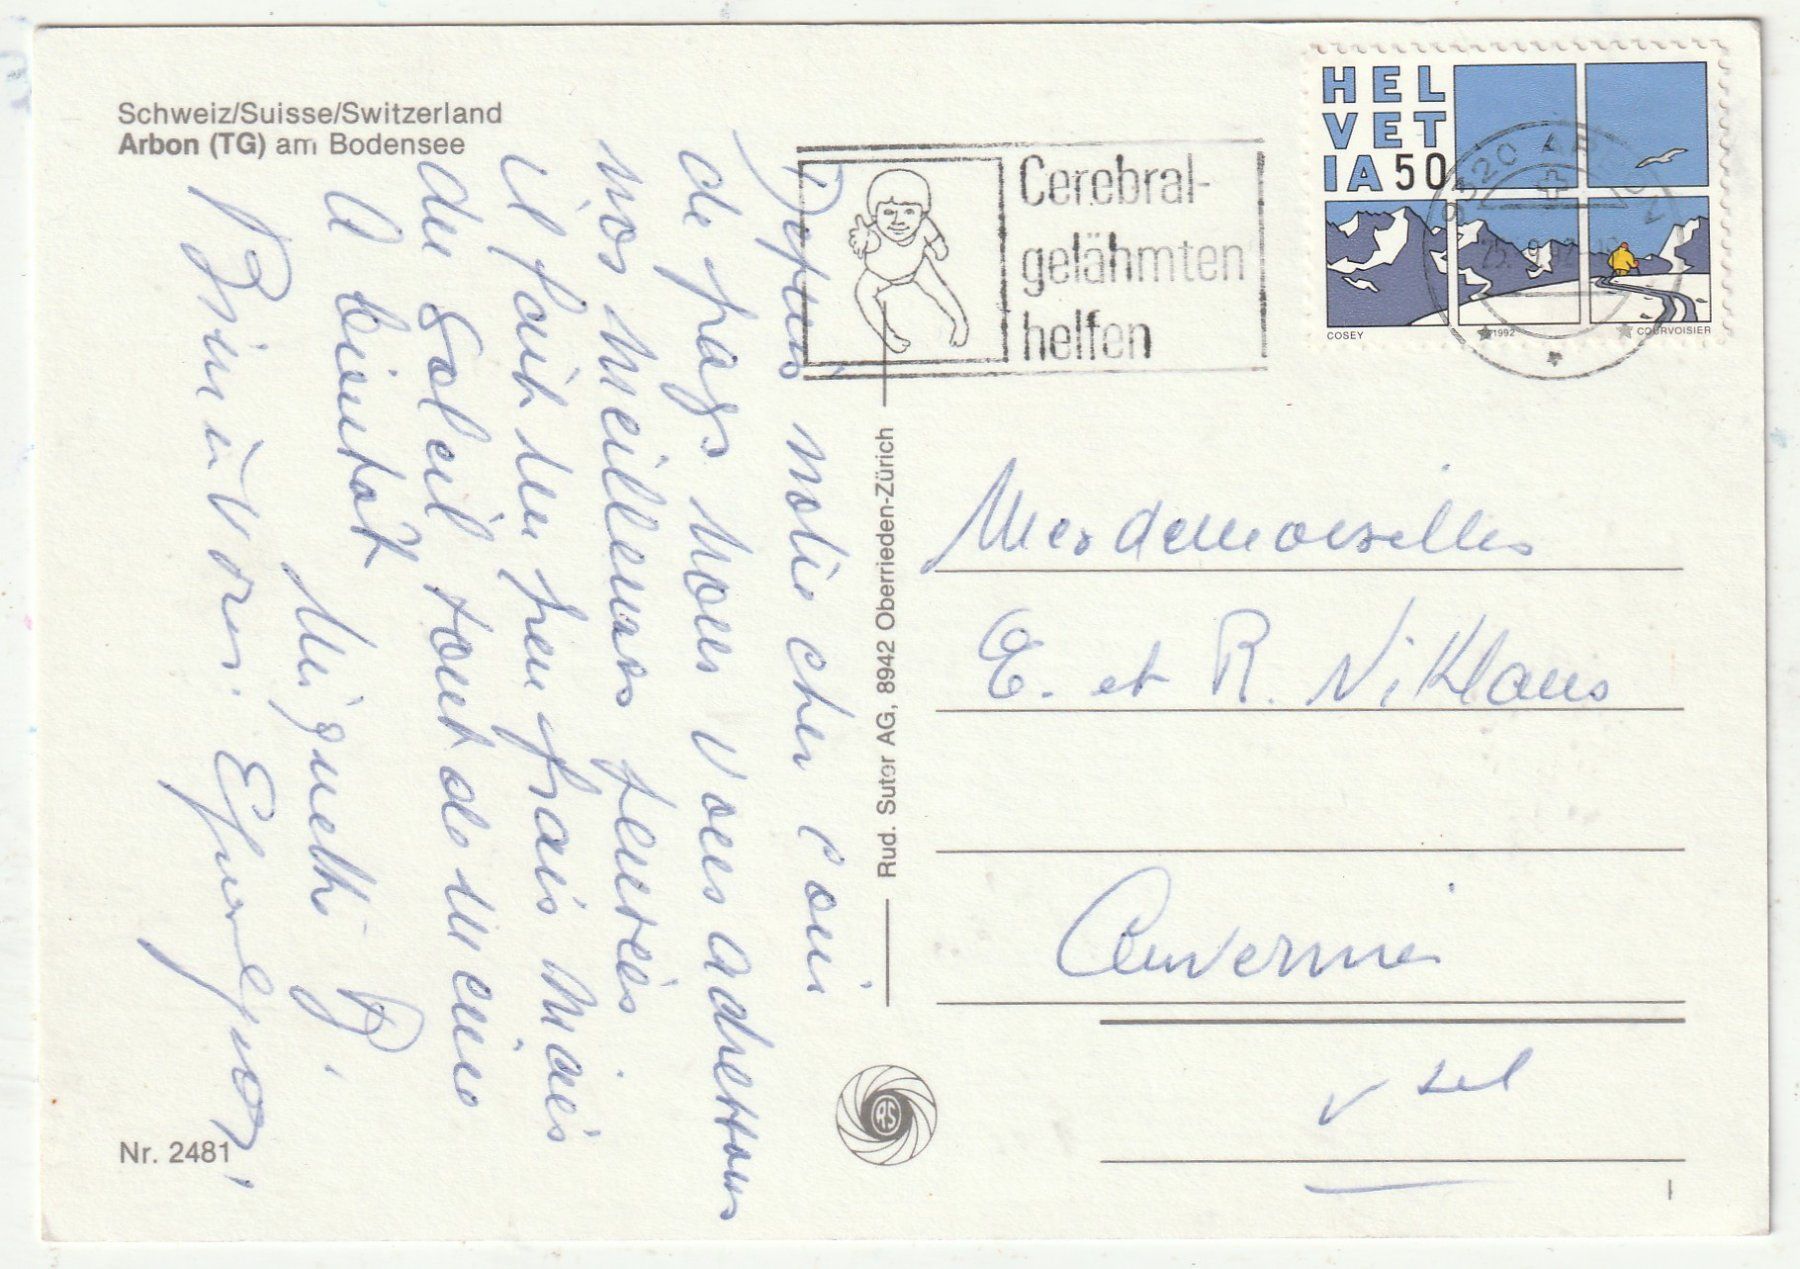 Schweiz/Suisse/Switzerland
Arbon (TG) am Bodensee
Depuis notre cher coin
de pays nous vous adressons
nos meilleures pensées
il fait un peu frais mais
du soleil tout de même
A bientôt
Huguette
Bien à vous.
Nr. 2481
Rud. Suter AG, 8942 Oberrieden-Zürich
RS
Cerebral-
gelähmten
helfen
HEL
VET
IA 50
COSEY 1992 COURVOISIER
9320 ARBON
Mesdemoiselles
E. et R. Niklaus
Auvernier